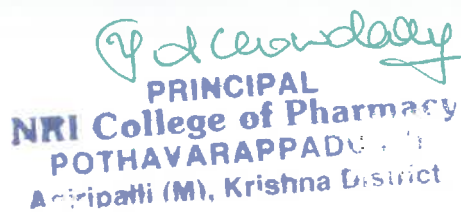 PRINCIPAL
NRI College of Pharmacy
POTHAVARAPPADU
(M), Krishna District